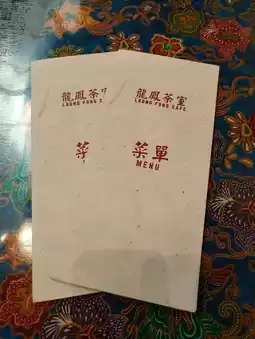 龍鳳茶
LOONG FONG C
菜
龍鳳茶室
LOONG FONG CAFE
菜單
MENU